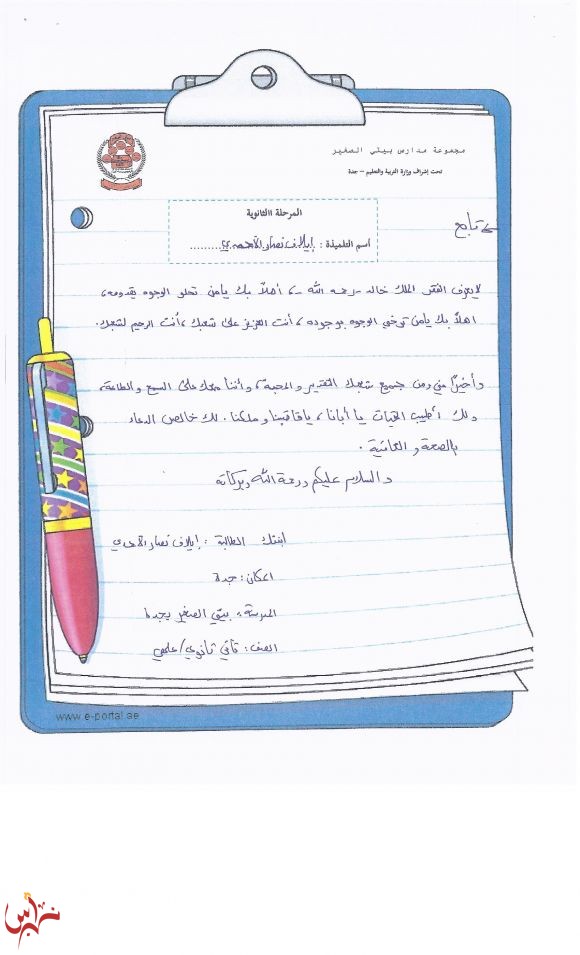 مجموعة مدارس بيتي الصغير
تحت إشراف وزارة التربية والتعليم - جدة
المرحلة الثانوية
اسم التلميذة : إيلاف نصار الأحمدي
تابع
لا يعرف الفقر الملك خالد -رحمه الله-، أهلاً بك يا من تحلو الوجوه بقدومه،
اهلاً بك يا من توخي الوجوه بوجوده، أنت العزيز على شعبك، أنت الرحيم لشعبك.
وأخيراً مني ومن جميع شعبك التقدير والمحبة، وأننا معك على السمع والطاعة،
ولك أطيب التحيات يا أبانا، يا قائدنا وملكنا. لك خالص الدعاء
بالصحة والعافية.
والسلام عليكم ورحمة الله وبركاته
ابنتك الطالبة : إيلاف نصار الأحمدي
المكان: جدة
المدرسة: بيتي الصغير بجدة
الصف: ثاني ثانوي/علمي
www.e-portal.ae
نبراس